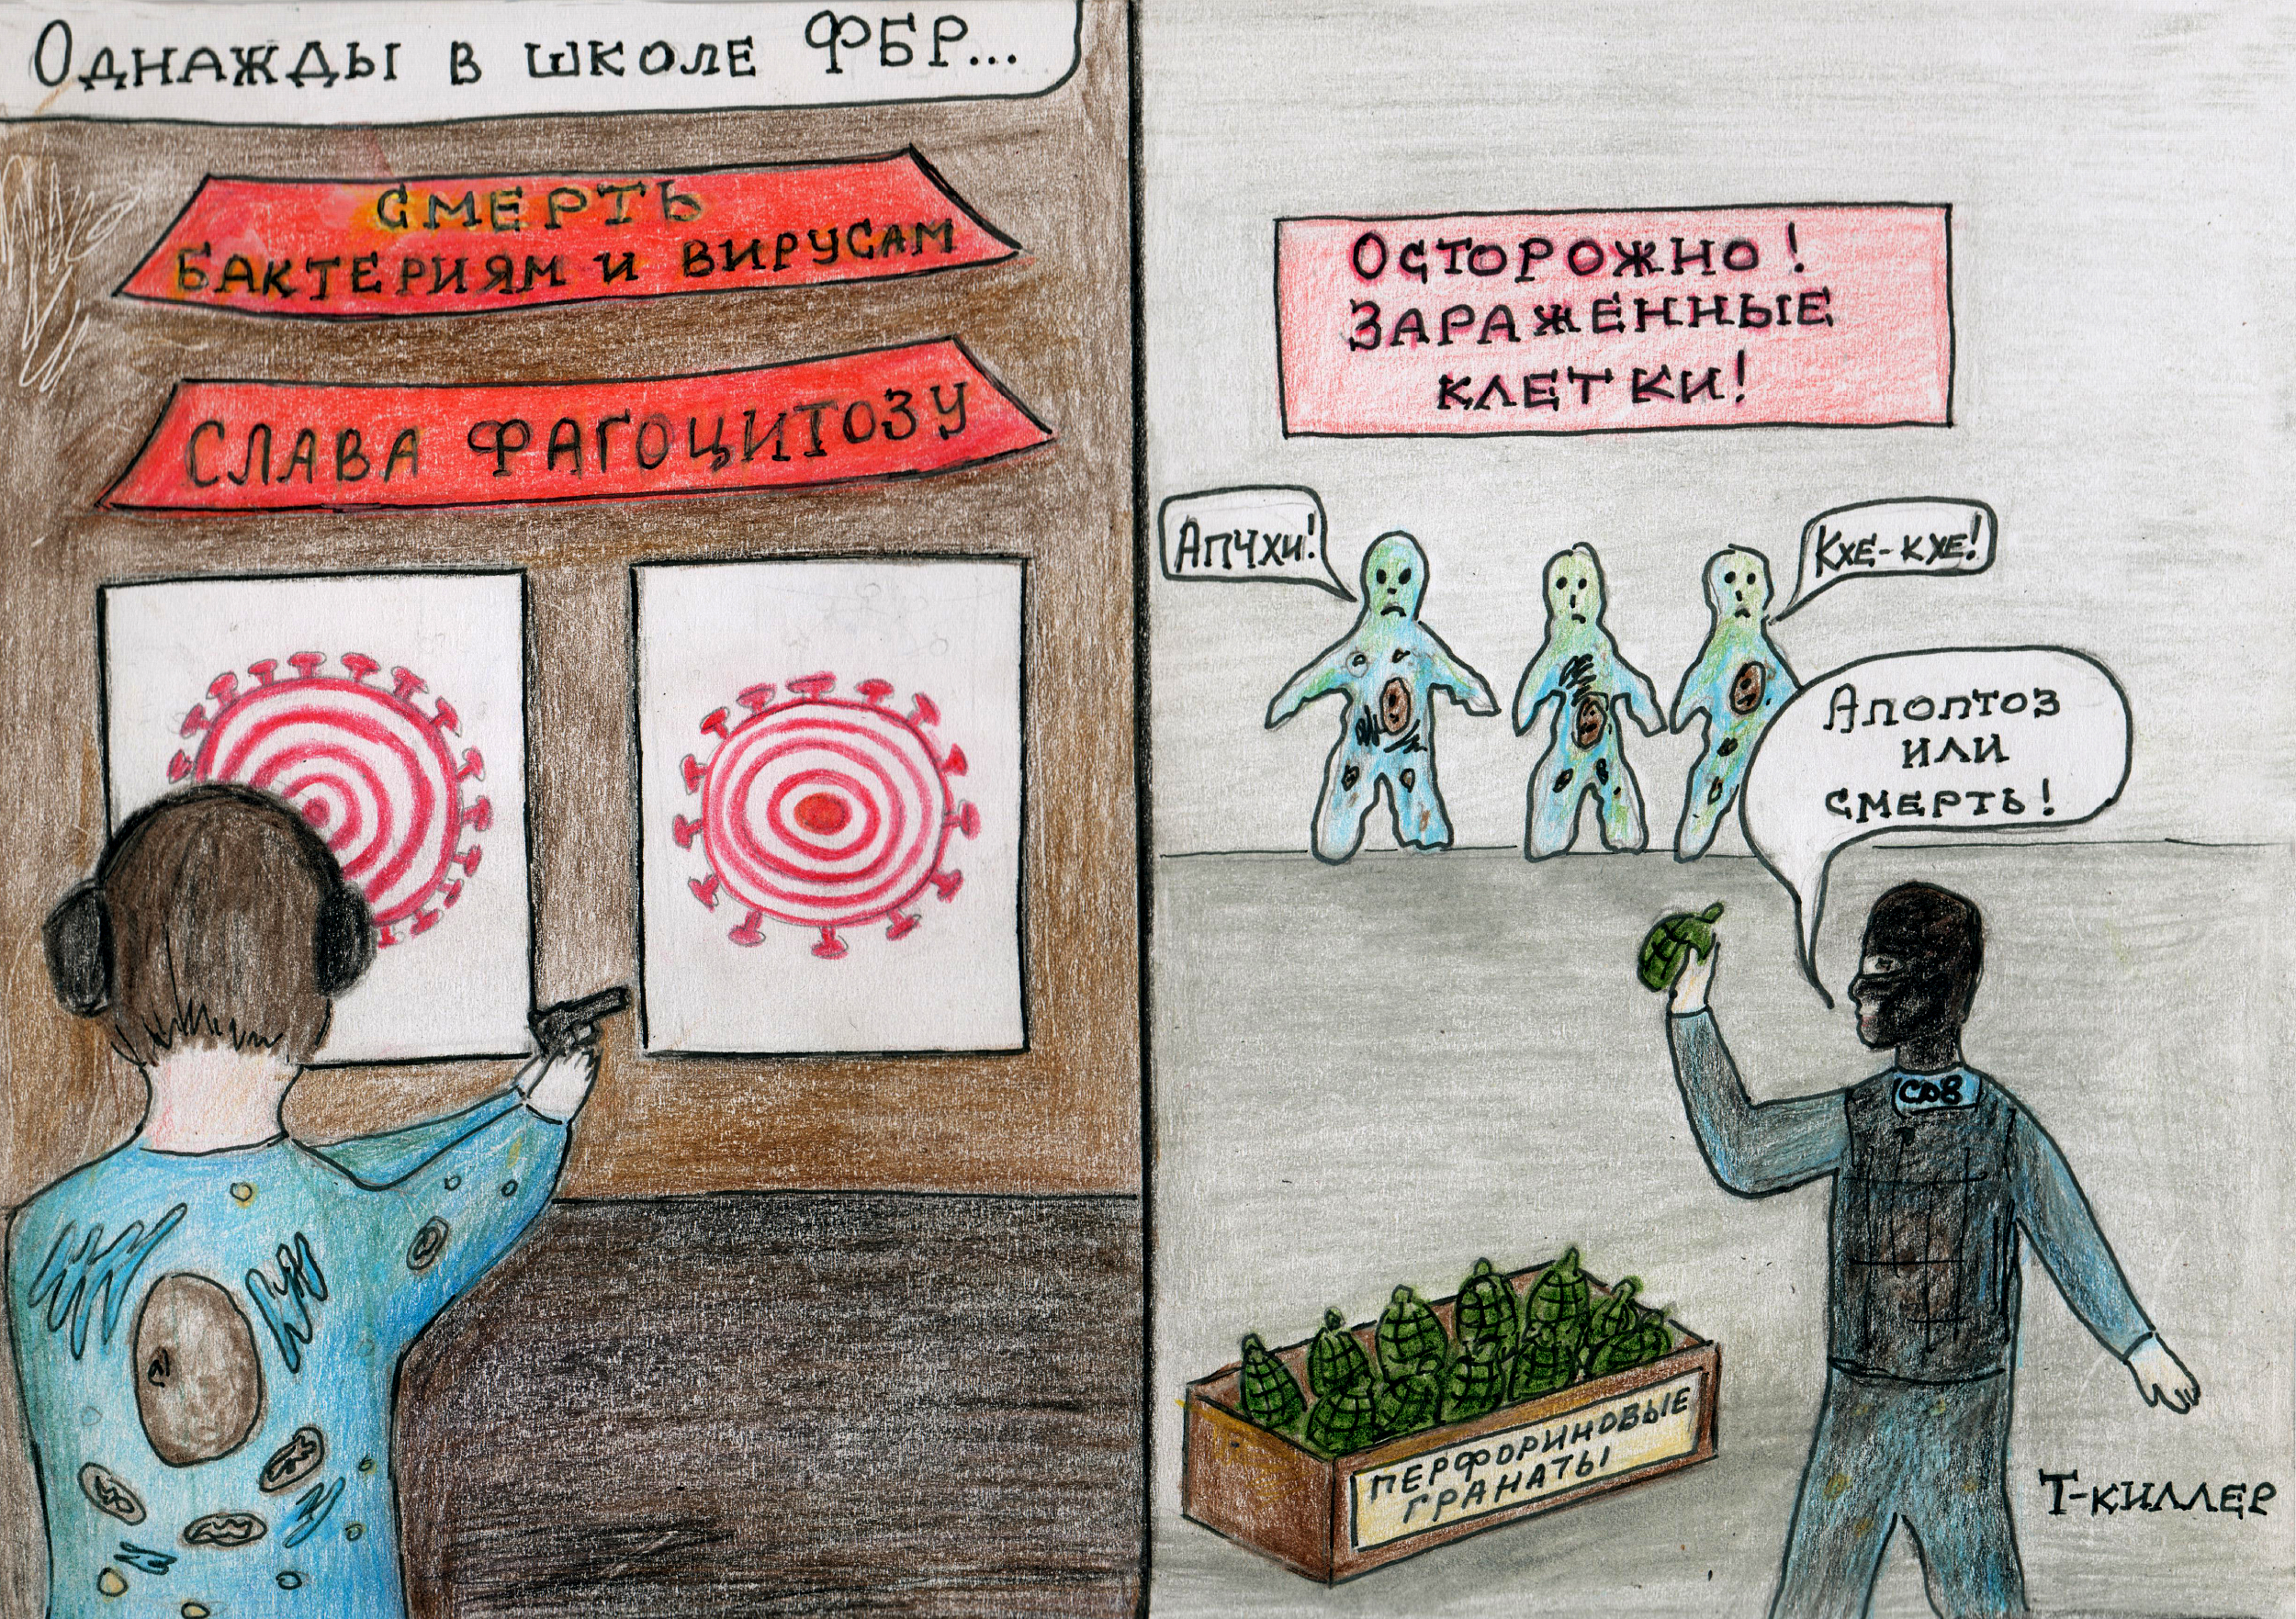 Однажды в школе ФБР...
СМЕРТЬ
БАКТЕРИЯМ И ВИРУСАМ
СЛАВА ФАГОЦИТОЗУ
ОСТОРОЖНО!
ЗАРАЖЕННЫЕ
КЛЕТКИ!
Апчхи!
Кхе-кхе!
Апоптоз
или
смерть!
CD8
ПЕРФОРИНОВЫЕ
ГРАНАТЫ
Т-киллер